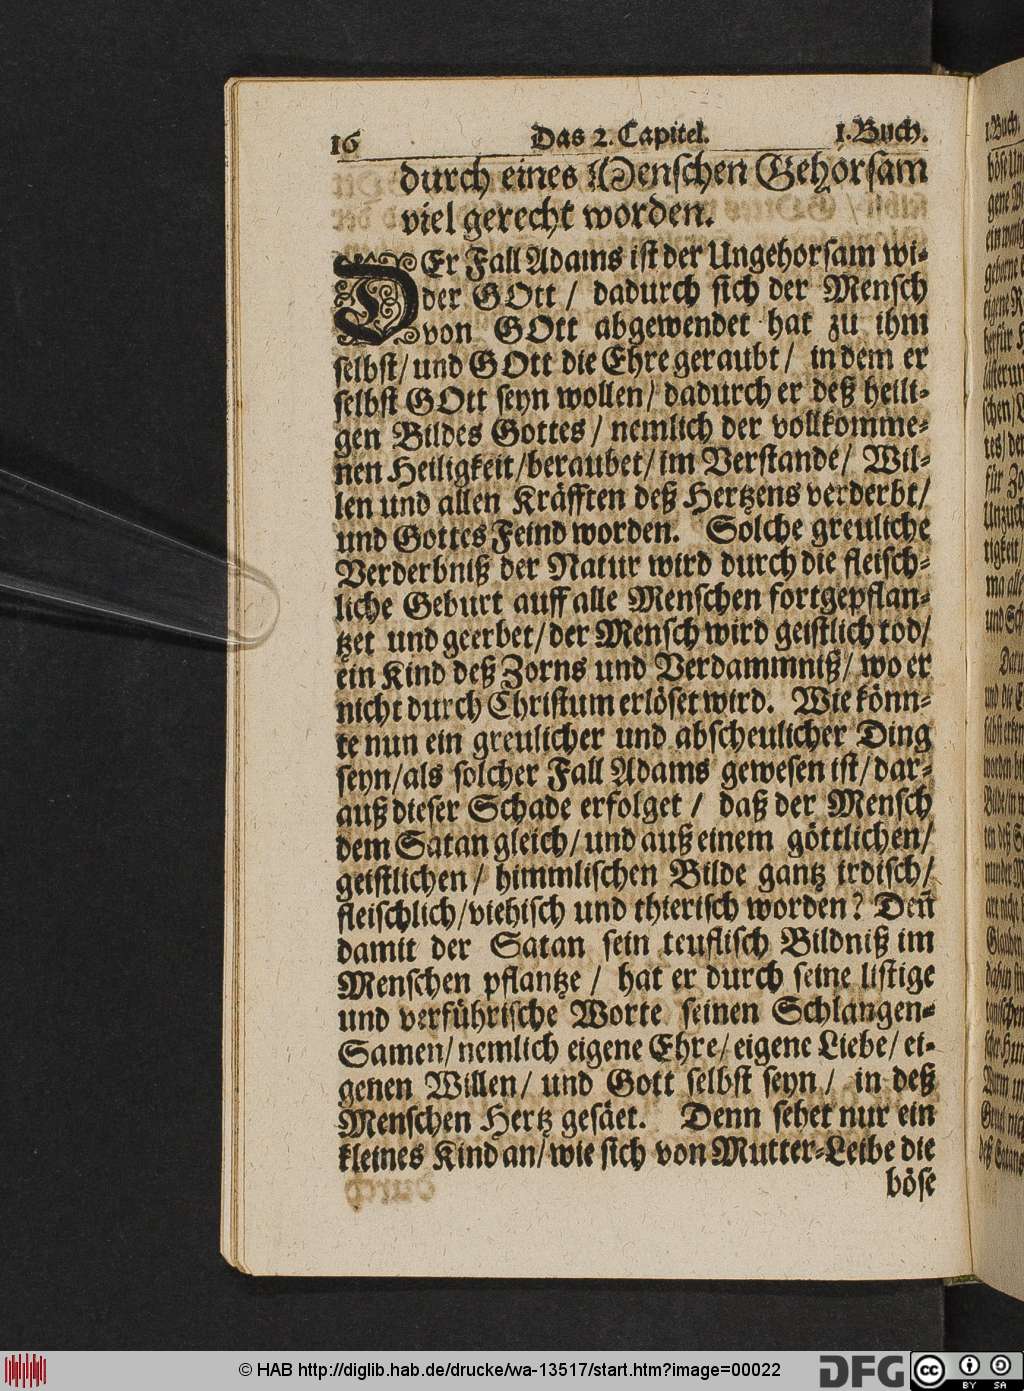 16 Das 2. Capitel. 1. Buch.
durch eines Menschen Gehorsam
viel gerecht worden.
DEr Fall Adams ist der Ungehorsam wi-
der GOtt / dadurch sich der Mensch
von GOtt abgewendet hat zu ihm
selbst/ und GOtt die Ehre geraubt / in dem er
selbst GOtt seyn wollen/ dadurch er deß heili-
gen Bildes Gottes / nemlich der vollkomme-
nen Heiligkeit/beraubet/ im Verstande/ Wil-
len und allen Kräfften deß Hertzens verderbt/
und Gottes Feind worden. Solche greuliche
Verderbniß der Natur wird durch die fleisch-
liche Geburt auff alle Menschen fortgepflan-
tzet und geerbet/ der Mensch wird geistlich tod/
ein Kind deß Zorns und Verdammniß/ wo er
nicht durch Christum erlöset wird. Wie könn-
te nun ein greulicher und abscheulicher Ding
seyn/als solcher Fall Adams gewesen ist/ dar-
auß dieser Schade erfolget / daß der Mensch
dem Satan gleich/ und auß einem göttlichen/
geistlichen / himmlischen Bilde gantz irdisch/
fleischlich/viehisch und thierisch worden? Deñ
damit der Satan sein teuflisch Bildniß im
Menschen pflantze / hat er durch seine listige
und verführische Worte seinen Schlangen-
Samen/ nemlich eigene Ehre/ eigene Liebe/ ei-
genen Willen/ und Gott selbst seyn / in deß
Menschen Hertz gesäet. Denn sehet nur ein
kleines Kind an/ wie sich von Mutter-Leibe die
böse
© HAB http://diglib.hab.de/drucke/wa-13517/start.htm?image=00022
DFG
cc BY SA